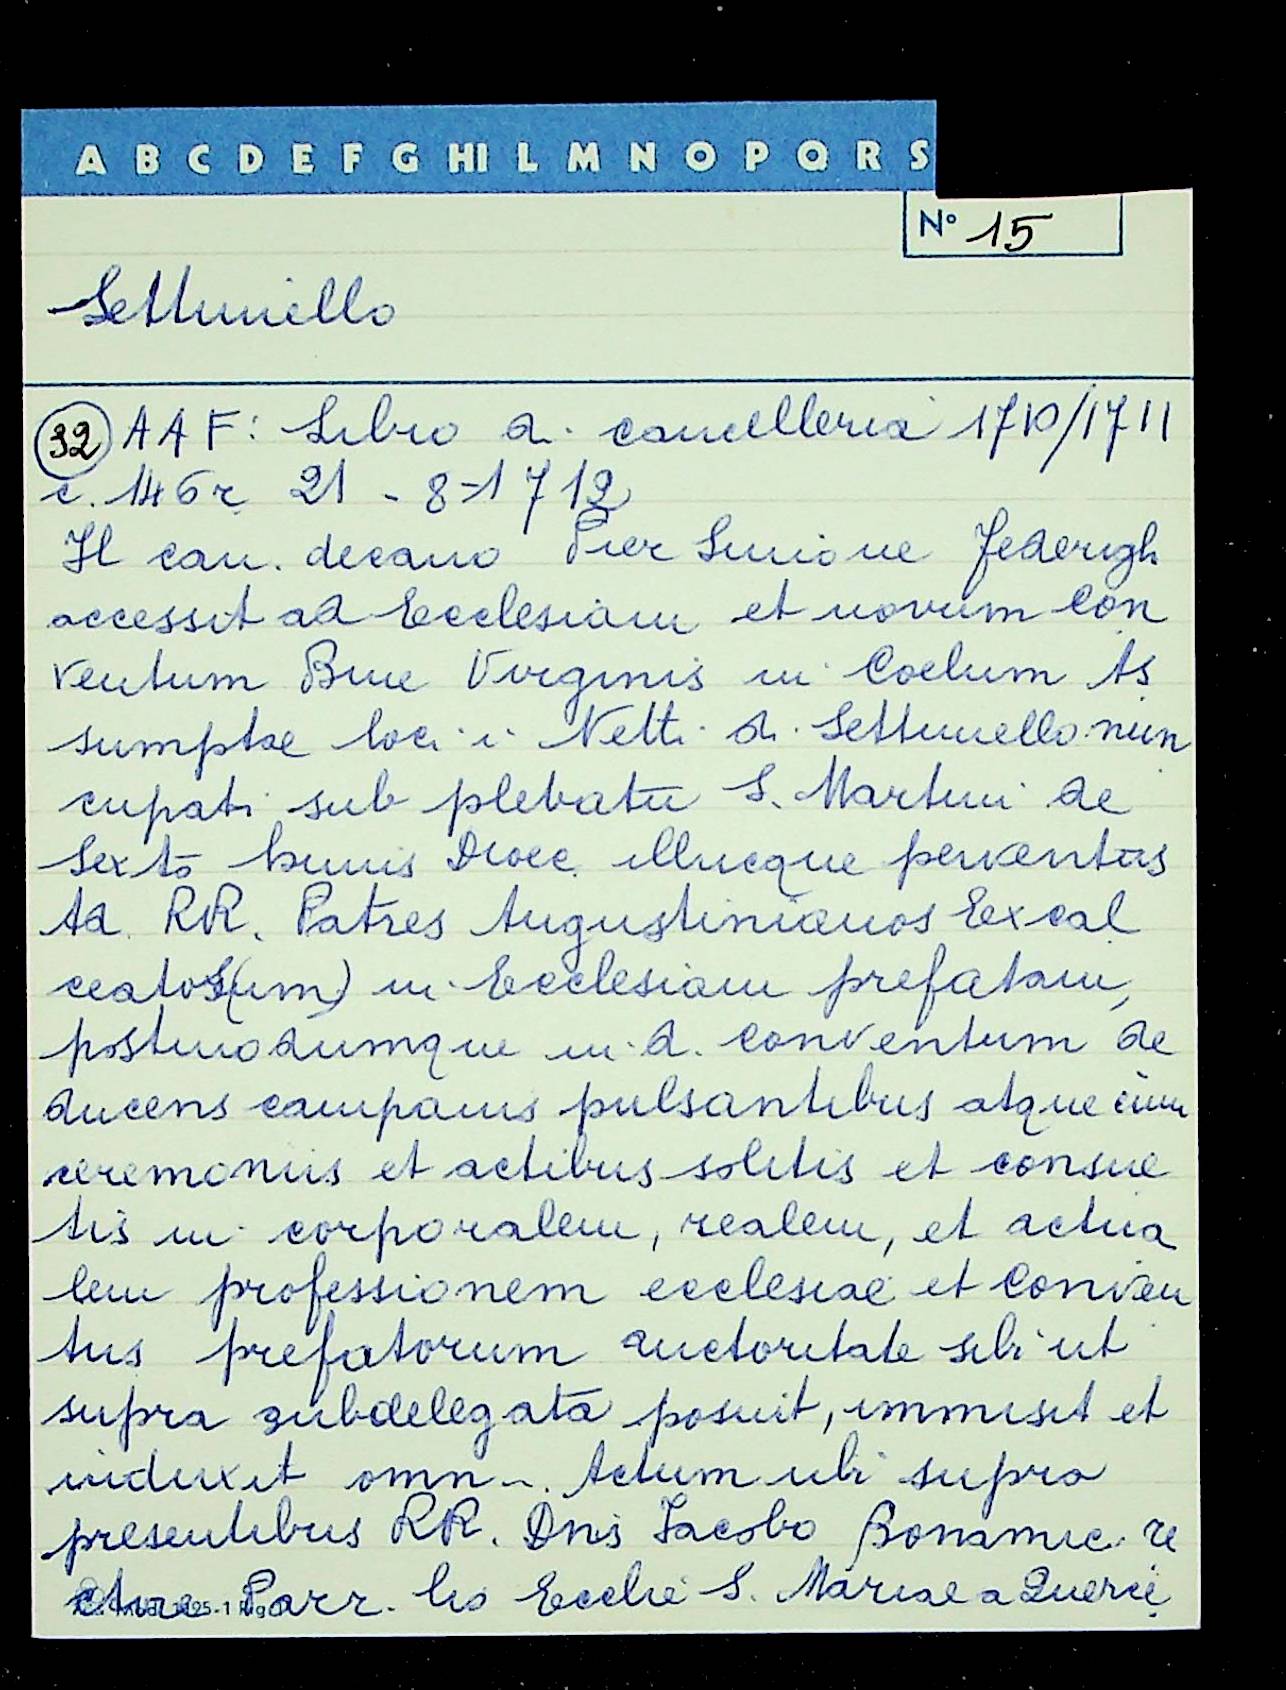 A B C D E F G HI L M N O P Q R S
N° 15
Settimello
32 AAF: Libro di cancelleria 1710/1711
c. 146r 21 - 8-1712
Il can. decano Pier Simone Federigh
accessit ad Ecclesiam et novum Con
ventum Bme Virginis in Coelum As
sumptae loci i Netti di Settimello nun
cupati sub plebatu S. Martini de
Sexto huius Dioec. illucque perventus
Ad. RR. Patres Augustinianos Excal
ceatos(um) in Ecclesiam prefatam,
postmodumque in d. conventum de
ducens campanis pulsantibus atque cum
ceremoniis et actibus solitis et consue
tis in corporalem, realem, et actua
lem professionem ecclesiae et Conven
tus prefatorum auctoritate sibi ut
supra subdelegata posuit, immisit et
induxit omn Actum ubi supra
presentibus RR. Dnis Jacobo Bonamic. re
ctore Parr. lis Ecclie S. Mariae a Querce